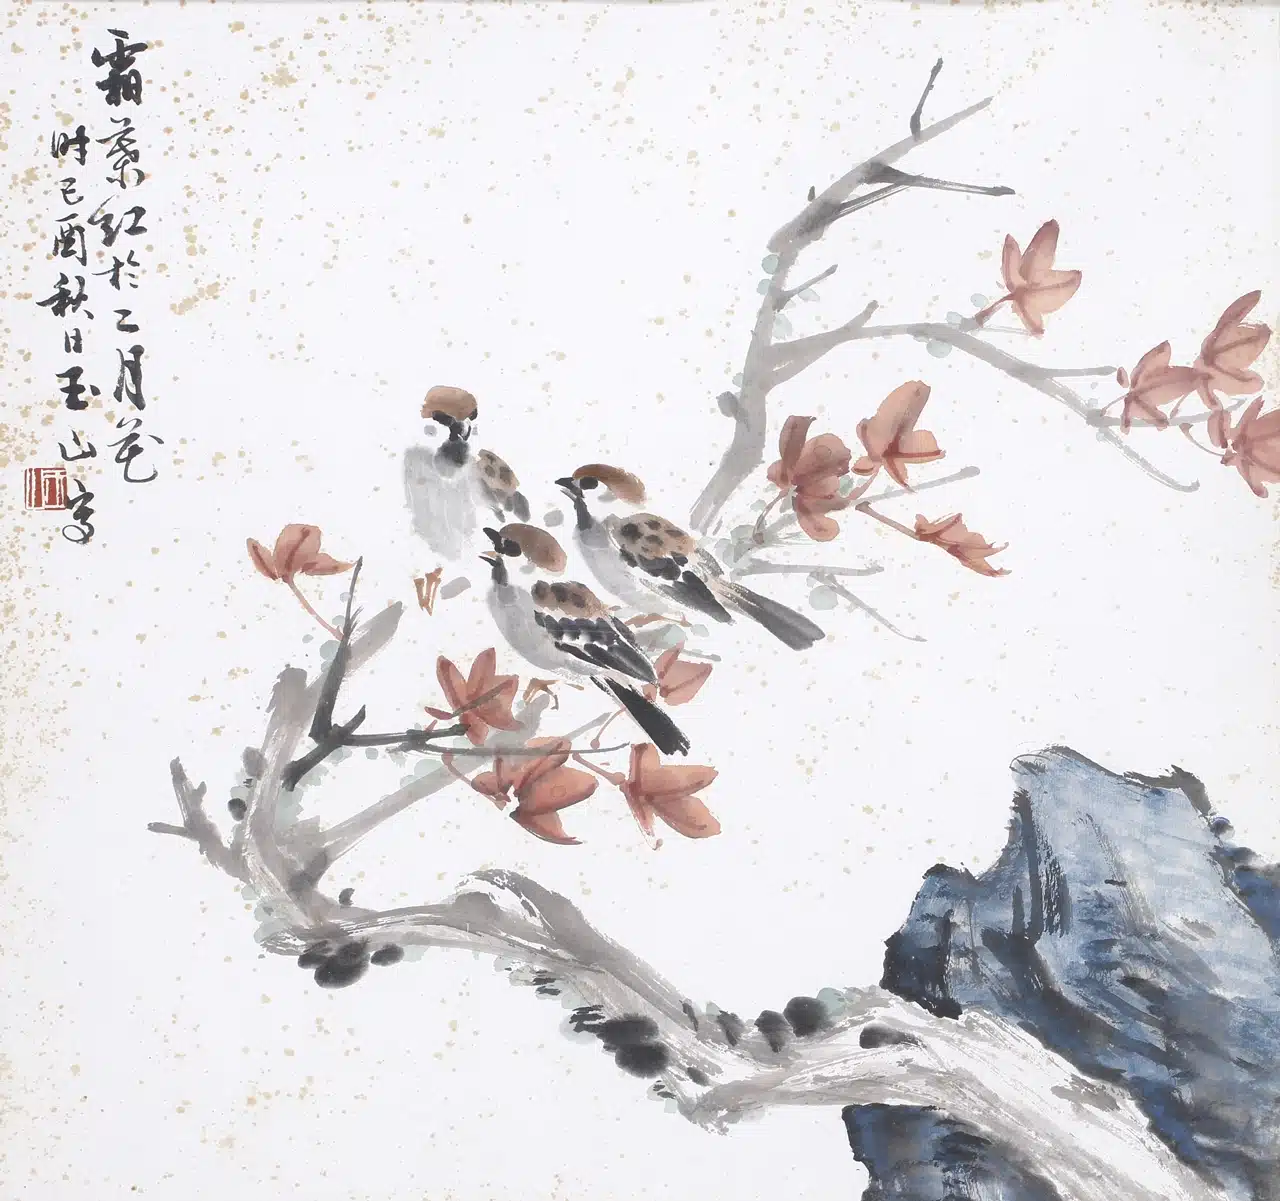 霜葉紅於二月花
时己酉秋日玉山写